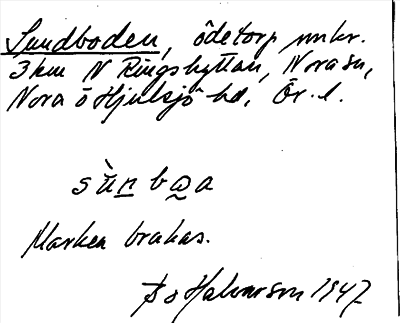 Sundboden, ödetorp omkr.
3 km N Ringshyttan, Nora sn,
Nora o Hjulsjö hd, Ör. l.
sùnbạa
Marken brukas.
Bo Halvarson 1947